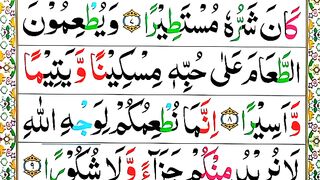 كَانَ شَرُّهٗ مُسْتَطِیْرًا ﴿۷﴾ وَیُطْعِمُوْنَ
الطَّعَامَ عَلٰی حُبِّهٖ مِسْكِیْنًا وَّیَتِیْمًا
وَّاَسِیْرًا ﴿۸﴾ اِنَّمَا نُطْعِمُكُمْ لِوَجْهِ اللّٰهِ
لَا نُرِیْدُ مِنْكُمْ جَزَآءً وَّلَا شُكُوْرًا ﴿۹﴾